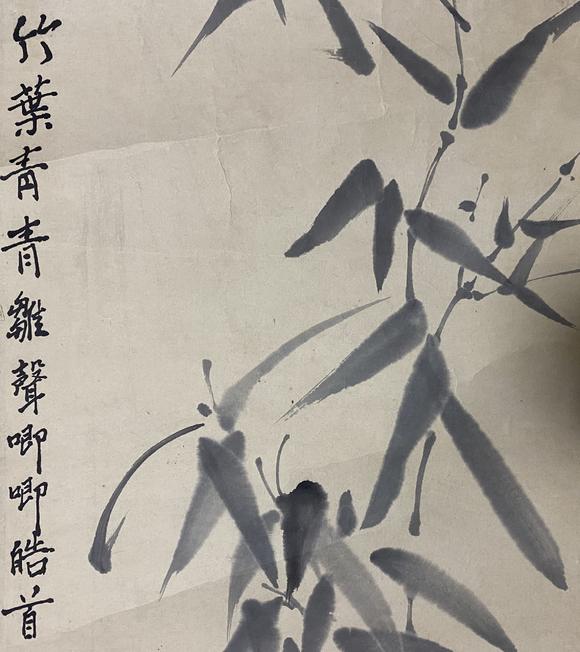 竹葉青青雛聲唧唧皓首